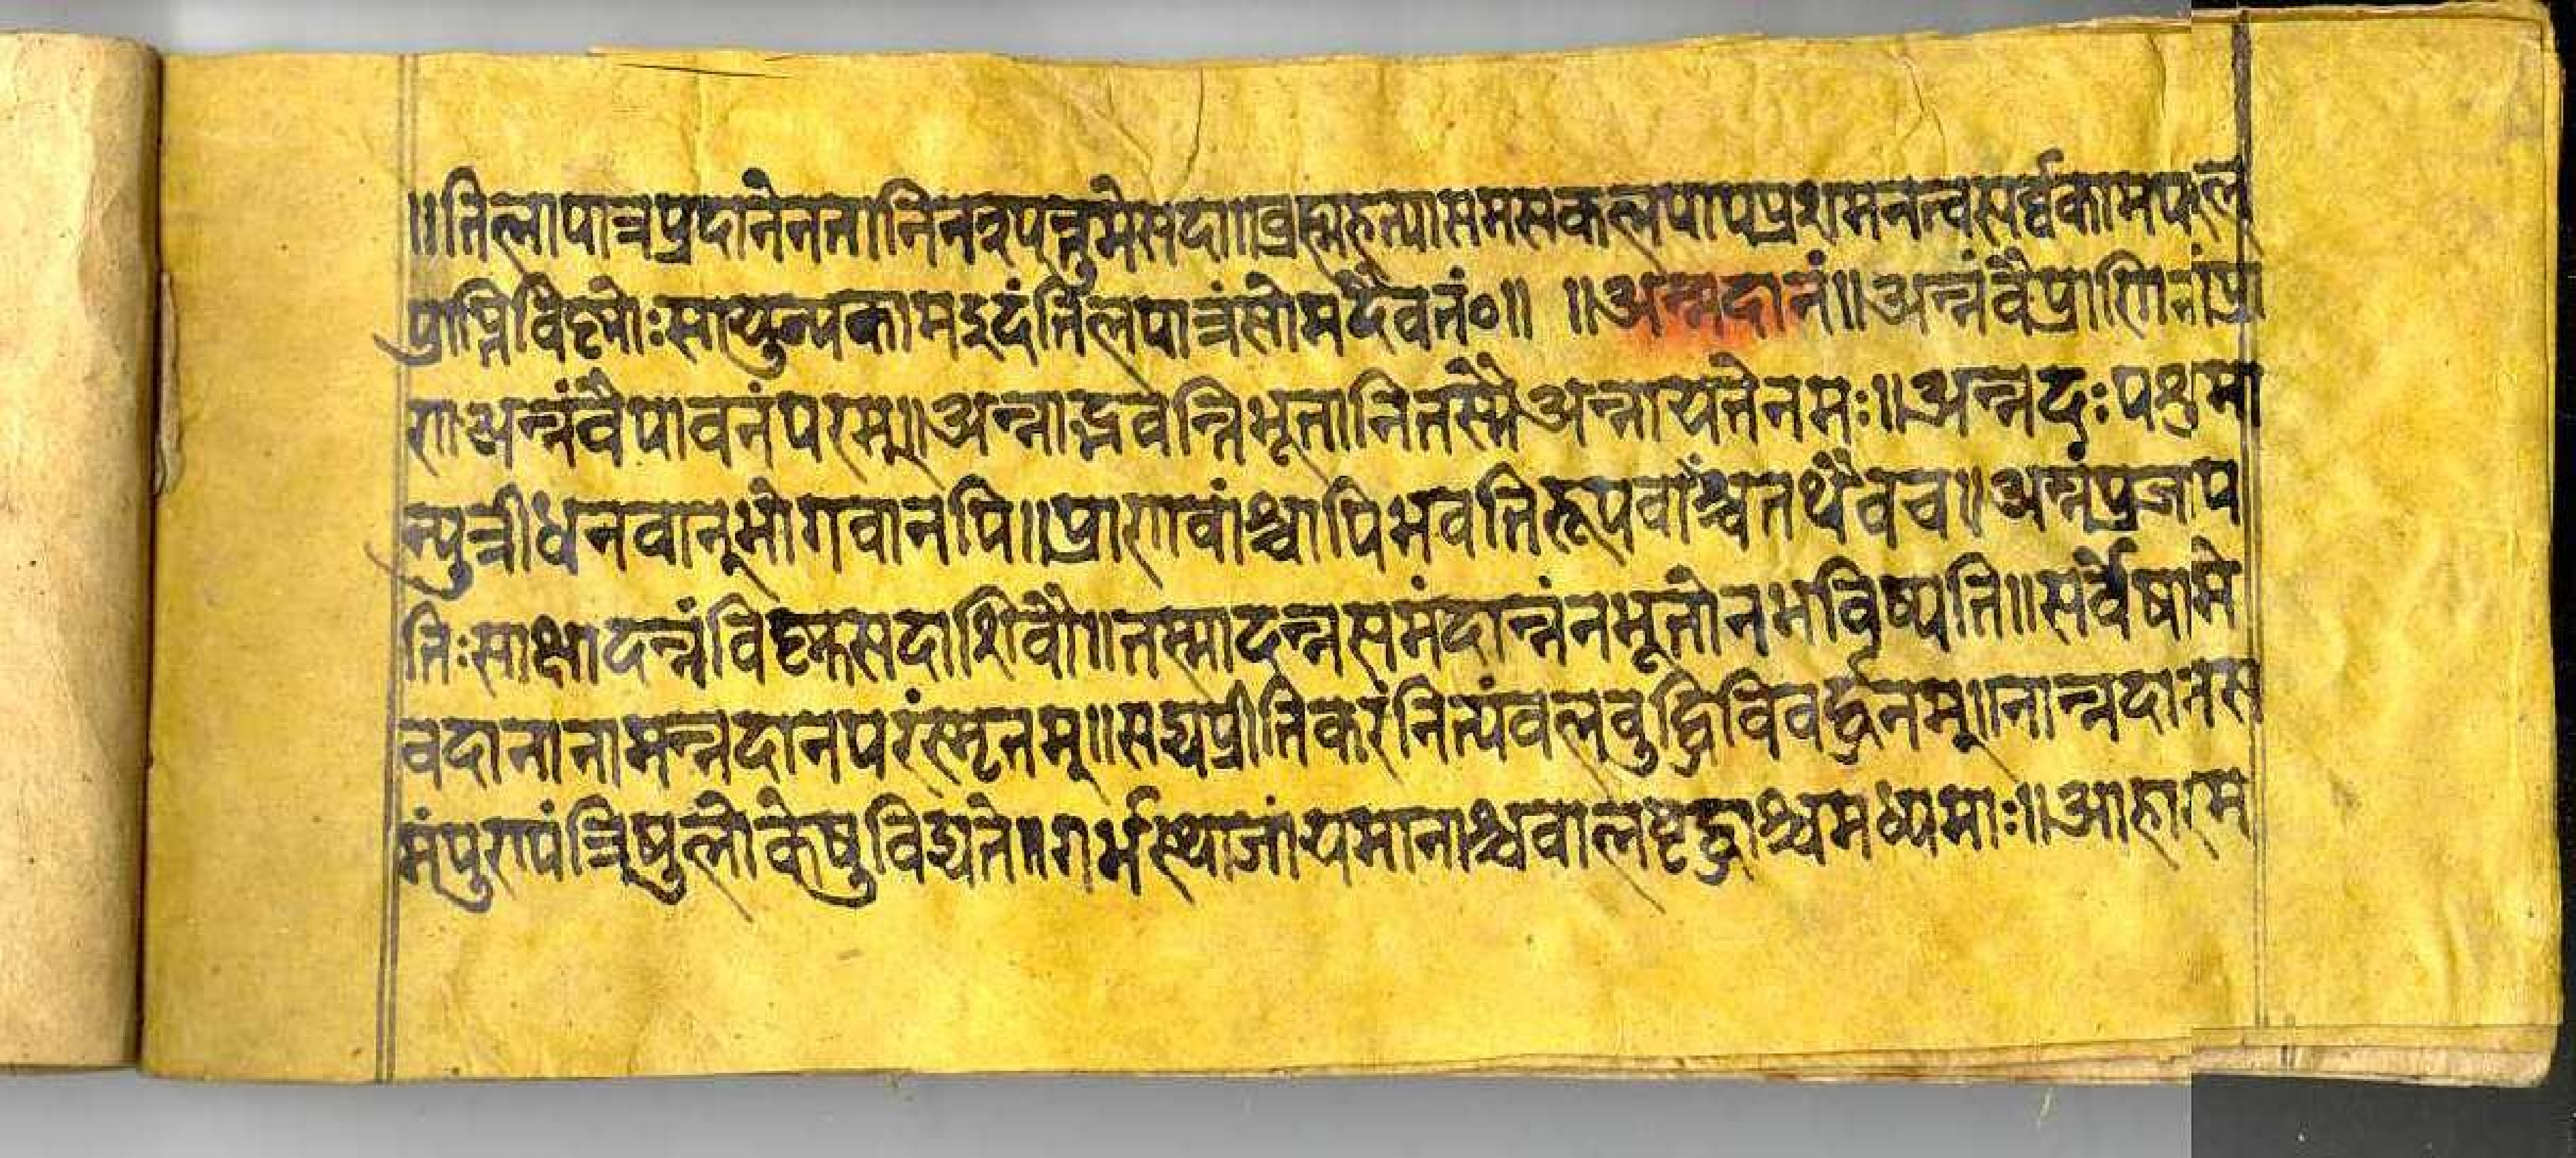 ॥तिलापात्रप्रदानेनतानिनश्यन्तुमेसदा॥ब्रह्महत्यासमसकलपापप्रशमनत्वसर्व्वकामफल
प्राप्तिविष्णोःसायुज्यकामइदंतिलपात्रंसोमदैवतं०॥ ॥अन्नदानं॥अन्नंवैप्राणिनांप्रा
णाअन्नंवैपावनंपरम्॥अन्नाद्भवन्तिभूतानितस्मैअन्नायतेनमः॥अन्नदःपशुमा
न्पुत्रीधनवान्भोगवानपि॥प्राणवांश्चापिभवतिरूपवांश्चतथैवच॥अन्नंप्रजाप
तिःसाक्षादन्नंविष्णुसदाशिवौ॥तस्मादन्नसमंदान्नंनभूतोनभविष्यति॥सर्वेषामे
वदानानामन्नदानपरंस्मृतम्॥सद्यप्रीतिकरंनित्यंवलवुद्धिविवर्द्धनम्॥नान्नदानस
मंपुण्यंत्रिषुलोकेषुविद्यते॥गर्भस्थाजायमानाश्चवालवृद्धाश्चमध्यमाः॥आहारम